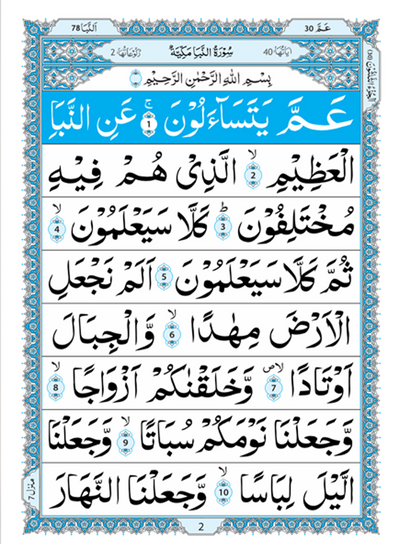 عَمَّ 30
اَلنَّبَا 78
اٰيَاتُهَا 40
سُوْرَةُ النَّبَاِ مَكِّيَّةٌ
رُكُوْعَاتُهَا 2
بِسْمِ اللّٰهِ الرَّحْمٰنِ الرَّحِيْمِ
عَمَّ يَتَسَآءَلُوْنَ ۚ 1 عَنِ النَّبَاِ
الْعَظِيْمِ ۙ 2 الَّذِىْ هُمْ فِيْهِ
مُخْتَلِفُوْنَ ؕ 3 كَلَّا سَيَعْلَمُوْنَ ۙ 4
ثُمَّ كَلَّا سَيَعْلَمُوْنَ 5 اَلَمْ نَجْعَلِ
الْاَرْضَ مِهٰدًا ۙ 6 وَّالْجِبَالَ
اَوْتَادًا ۪ۙ 7 وَّخَلَقْنٰكُمْ اَزْوَاجًا ۙ 8
وَّجَعَلْنَا نَوْمَكُمْ سُبَاتًا ۙ 9 وَّجَعَلْنَا
الَّيْلَ لِبَاسًا ۙ 10 وَّجَعَلْنَا النَّهَارَ
منزل 7
2